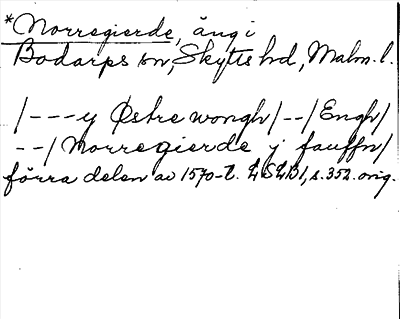 *Norregierde, äng i
Bodarps sn, Skytts hd, Malm. l.
/---y Østre wongh/--/Engh/
--/Norregierde j fauffn/
förra delen av 1570-t. LSLB1, s. 352. orig.